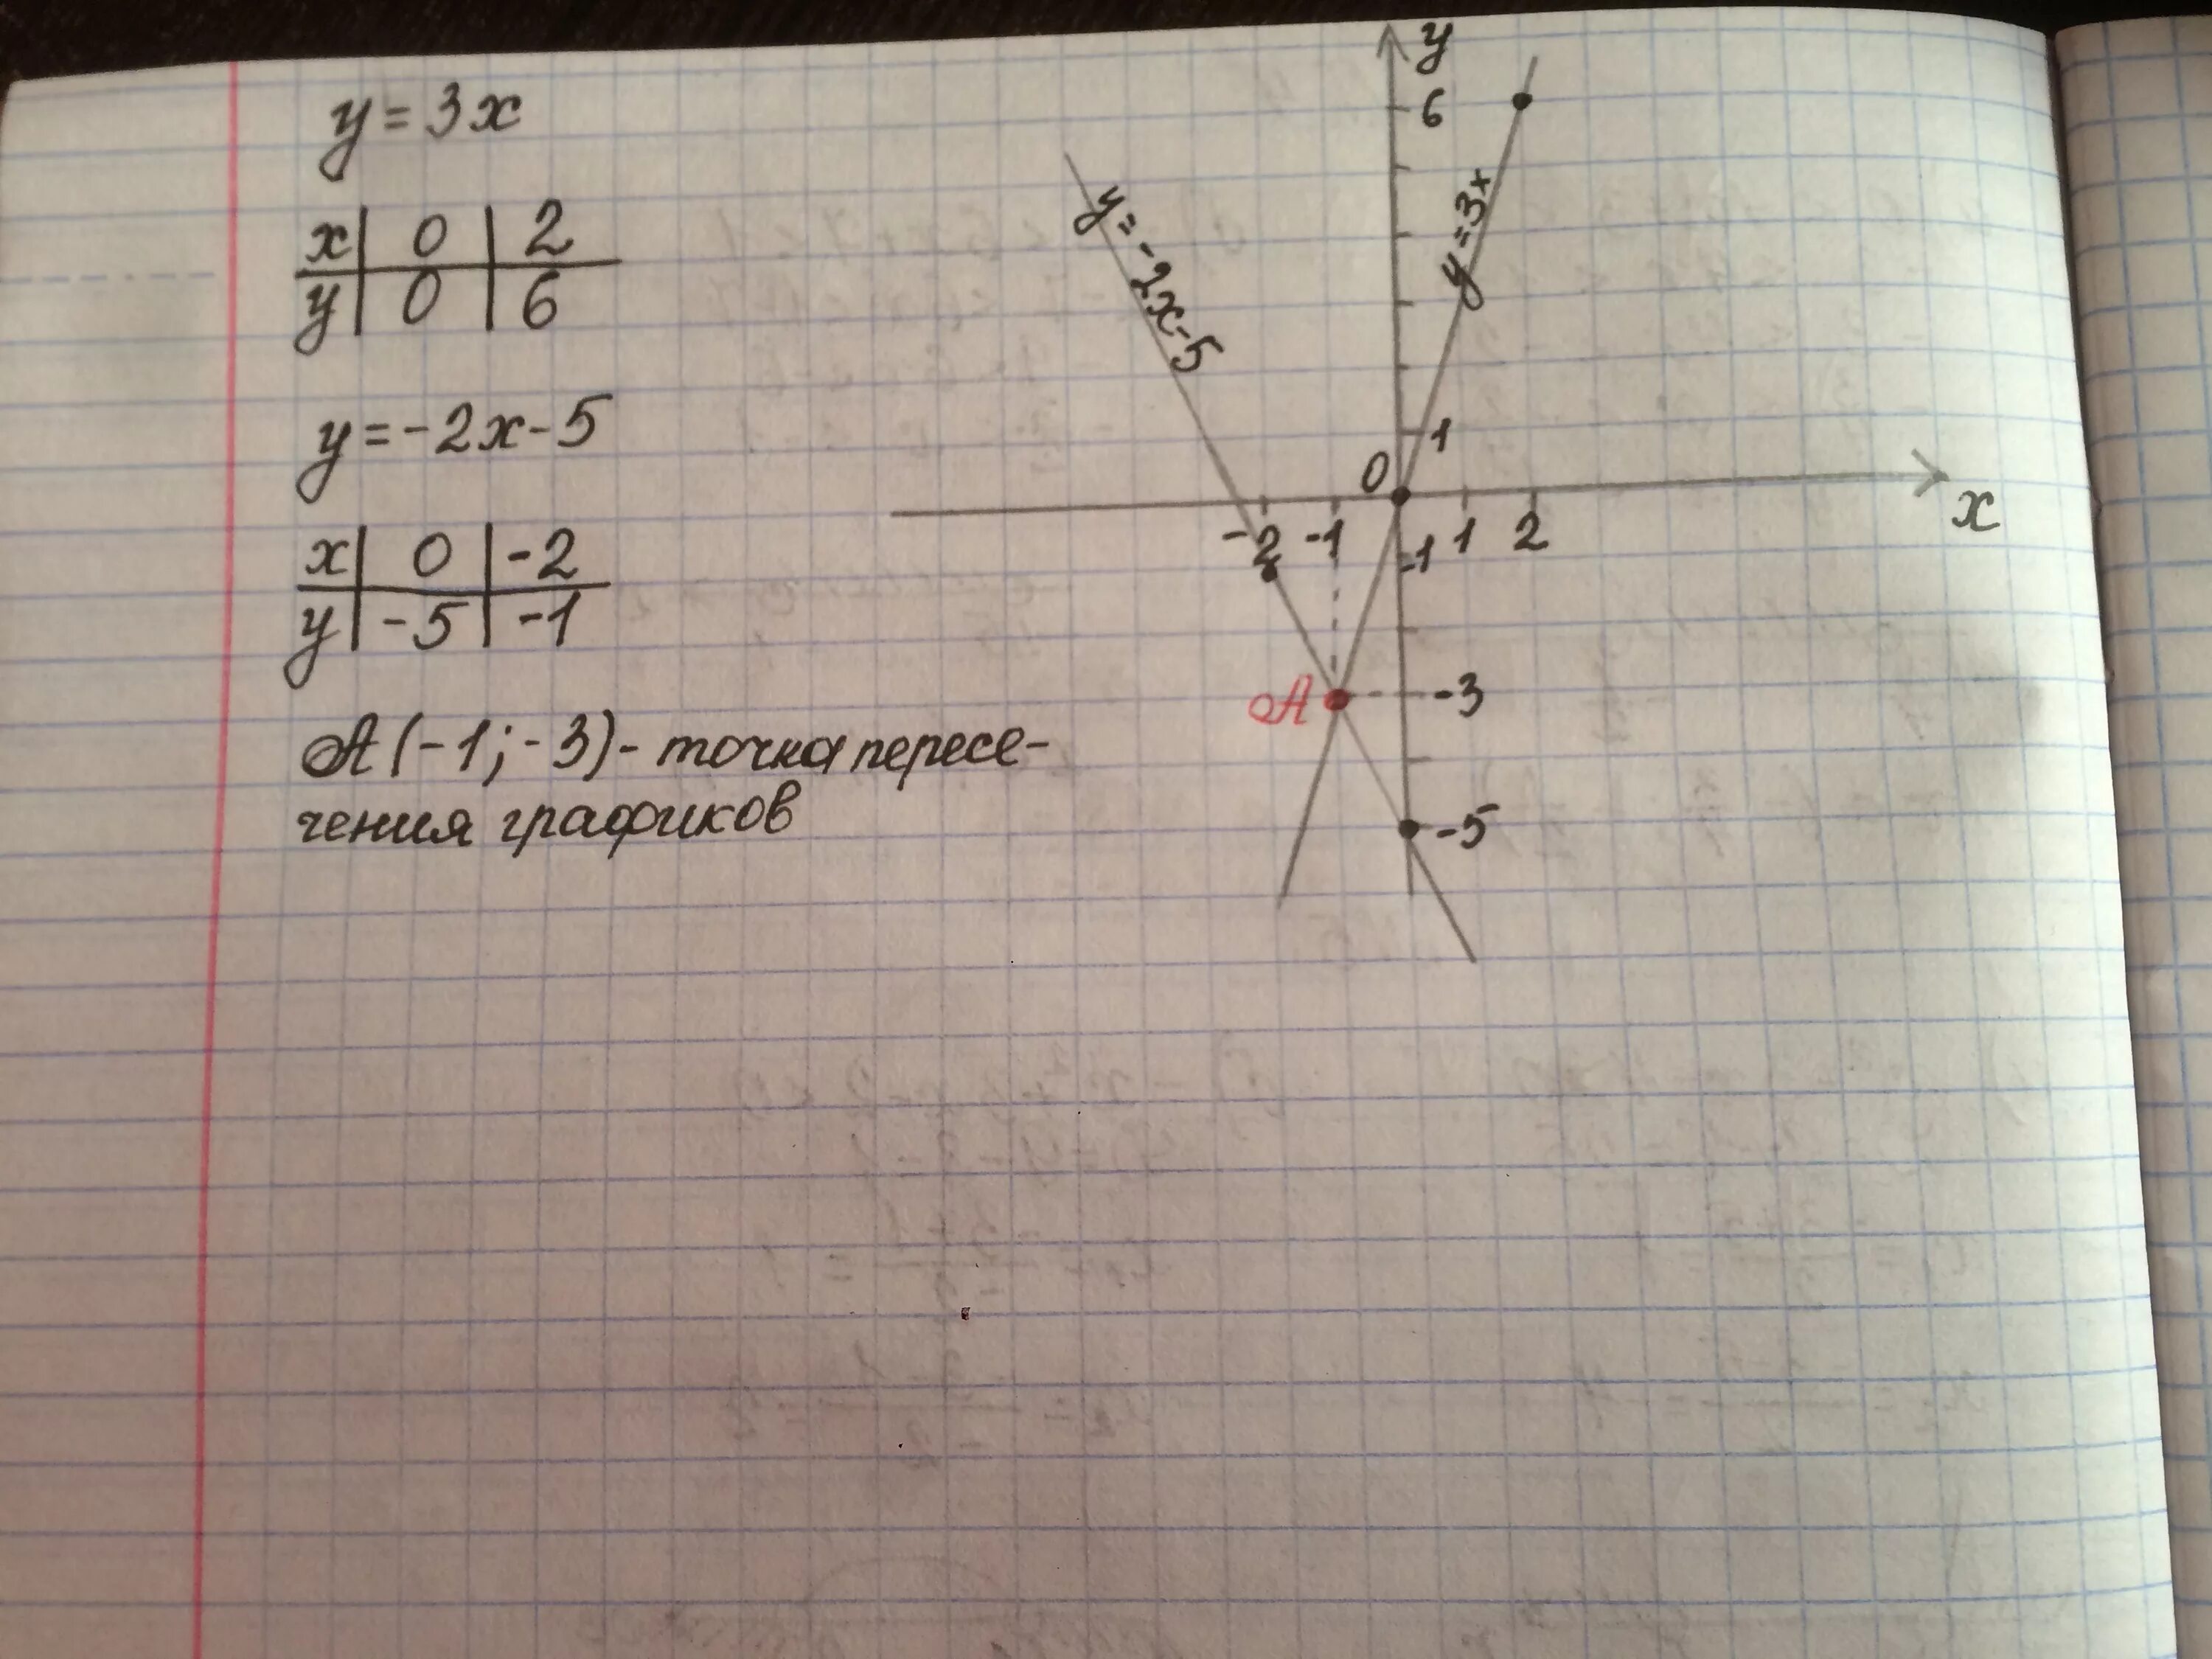 y = 3x
x | 0 | 2
y | 0 | 6
y = -2x - 5
x | 0 | -2
y | -5 | -1
A (-1; -3) - точка пересе-
чения графиков
y
6
y = 3x
y = -2x - 5
1
0
x
-2 -1 1 2
-1
A -3
-5